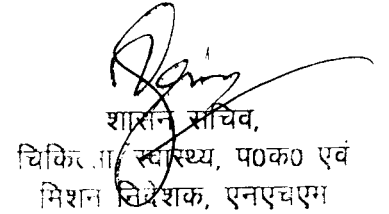 शासन सचिव,
चिकित्सा, स्वास्थ्य, प०क० एवं
मिशन निदेशक, एनएचएम